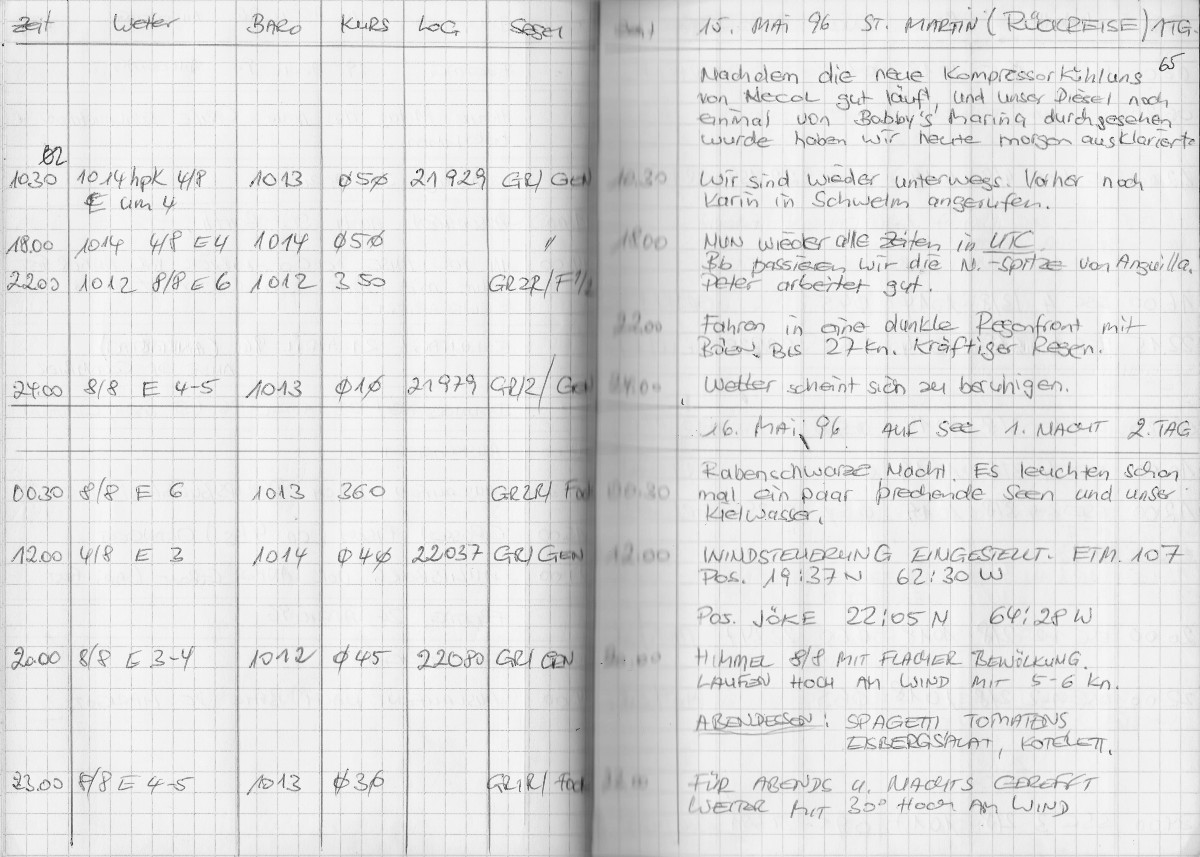 Zeit Wetter BARO KURS LOG Segel
15. MAI 96 ST. MARTIN (RÜCKREISE) 1TG.
65
Nachdem die neue Kompressorkühlung
von Mecol gut läuft, und unser Diesel noch
einmal von Bobby's Marina durchgesehen
wurde haben wir heute morgen ausklarierte
10.30 1014 hpk 4/8 1013 Ø5Ø 21929 GR/ GEN
E um 4
10.30 Wir sind wieder unterwegs. Vorher noch
Karin in Schwelm angerufen.
18.00 1014 4/8 E 4 1014 Ø5Ø "
18.00 NUN wieder alle Zeiten in UTC
Bb passieren wir die N.-Spitze von Anguilla.
Peter arbeitet gut.
22.00 1012 8/8 E 6 1012 350 GR2R/F1/2
22.00 Fahren in eine dunkle Regenfront mit
BÖEN. BIS 27 Kn. Kräftiger Regen.
24.00 8/8 E 4-5 1013 Ø1Ø 21979 GR/2/ Gen
24.00 Wetter scheint sich zu beruhigen.
16. MAI, 96 AUF SEE 1. NACHT 2. TAG
00.30 8/8 E 6 1013 360 GR2R/ Fock
00.30 Rabenschwarze Nacht. Es leuchten schon
mal ein paar brechende Seen und unser
Kielwasser.
12.00 4/8 E 3 1014 Ø4Ø 22037 GR/ GEN
12.00 WINDSTEUERUNG EINGESTELLT. ETM. 107
Pos. 19:37 N 62:30 W
Pos. JÖKE 22:05 N 64:28 W
20.00 8/8 E 3-4 1012 Ø45 22080 GR/ GEN
20.00 HIMMEL 8/8 MIT FLACHER BEWÖLKUNG.
LAUFEN HOCH AM WIND MIT 5-6 Kn.
ABENDESSEN: SPAGETTI TOMATENS
EISBERGSALAT, KOTELETT.
23.00 8/8 E 4-5 1013 Ø3Ø GR1R/ Fock
FÜR ABENDS u. NACHTS GEREFFT
WEITER MIT 30° HOCH AM WIND